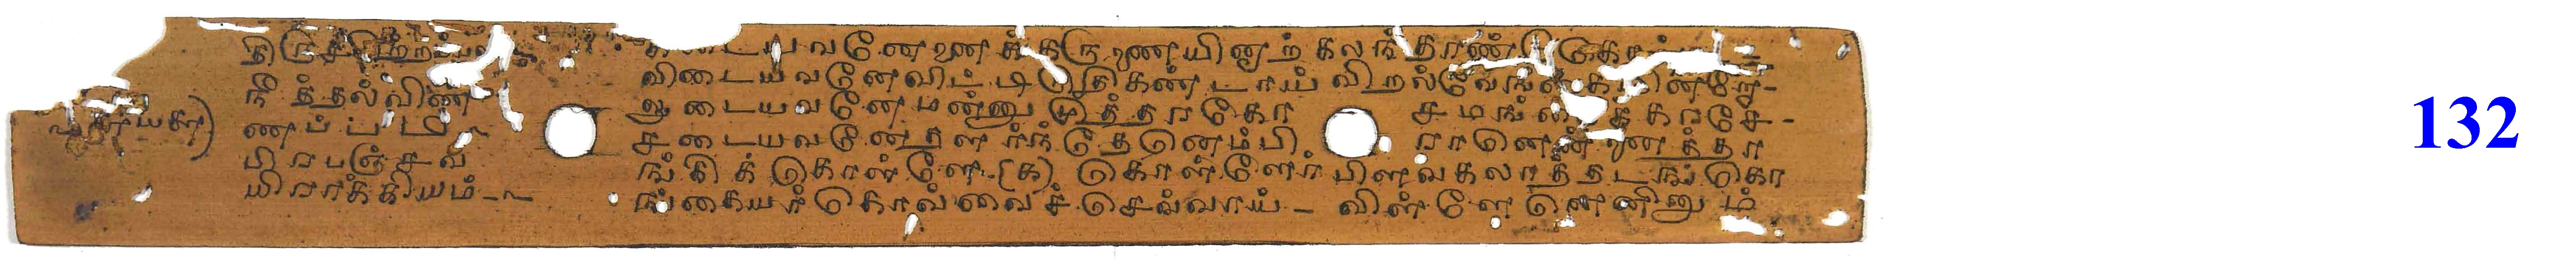 திருச்சிற்றம்பல
நீத்தல்விண்
ணப்பம்-
பிரபஞ்சவ
யிராக்கியம்--
டையவனேனைக்கருணையினாற்கலந்தாண்டுகொ
விடையவனேவிட்டிடுதிகண்டாய்விறல்வேங்கையின்றோ-
லுடையவனேமன்னுமுத்தரகோ சமங்கைக்கரசே-
சடையவனேதளர்ந்தேனெம்பி ரானென்னைத்தா
ங்கிக்கொள்ளே-(க) கொள்ளேர்பிளவகலாத்தடங்கொ
ங்கையர்கொவ்வைச்செவ்வாய்- விள்ளேனெனினும்
132